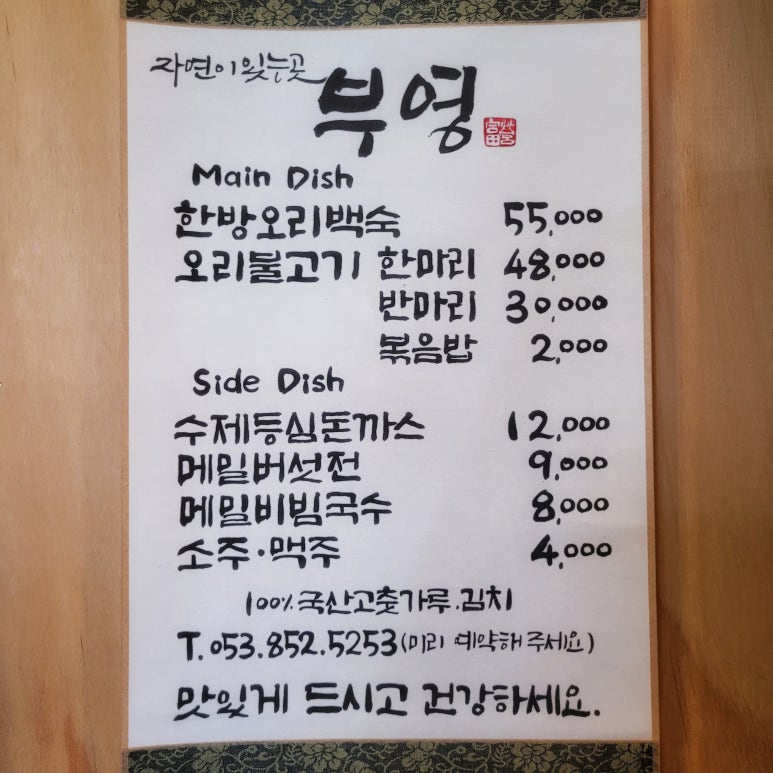 자연이 있는 곳
부영
Main Dish
한방오리백숙 55,000
오리불고기 한마리 48,000
반마리 30,000
볶음밥 2,000
Side Dish
수제등심돈까스 12,000
메밀버섯전 9,000
메밀비빔국수 8,000
소주·맥주 4,000
100% 국산고춧가루.김치
T.053.852.5253(미리 예약해 주세요)
맛있게 드시고 건강하세요.